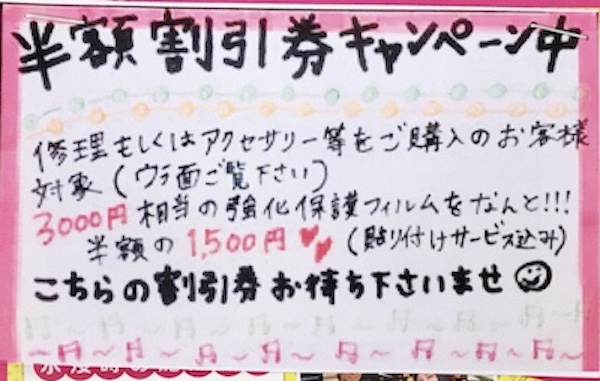 半額割引券キャンペーン中
修理もしくはアクセサリー等をご購入のお客様
対象(ウラ面ご覧下さい)
3000円相当の強化保護フィルムをなんと!!!
半額の1,500円(貼り付けサービス込み)
こちらの割引券お待ち下さいませ